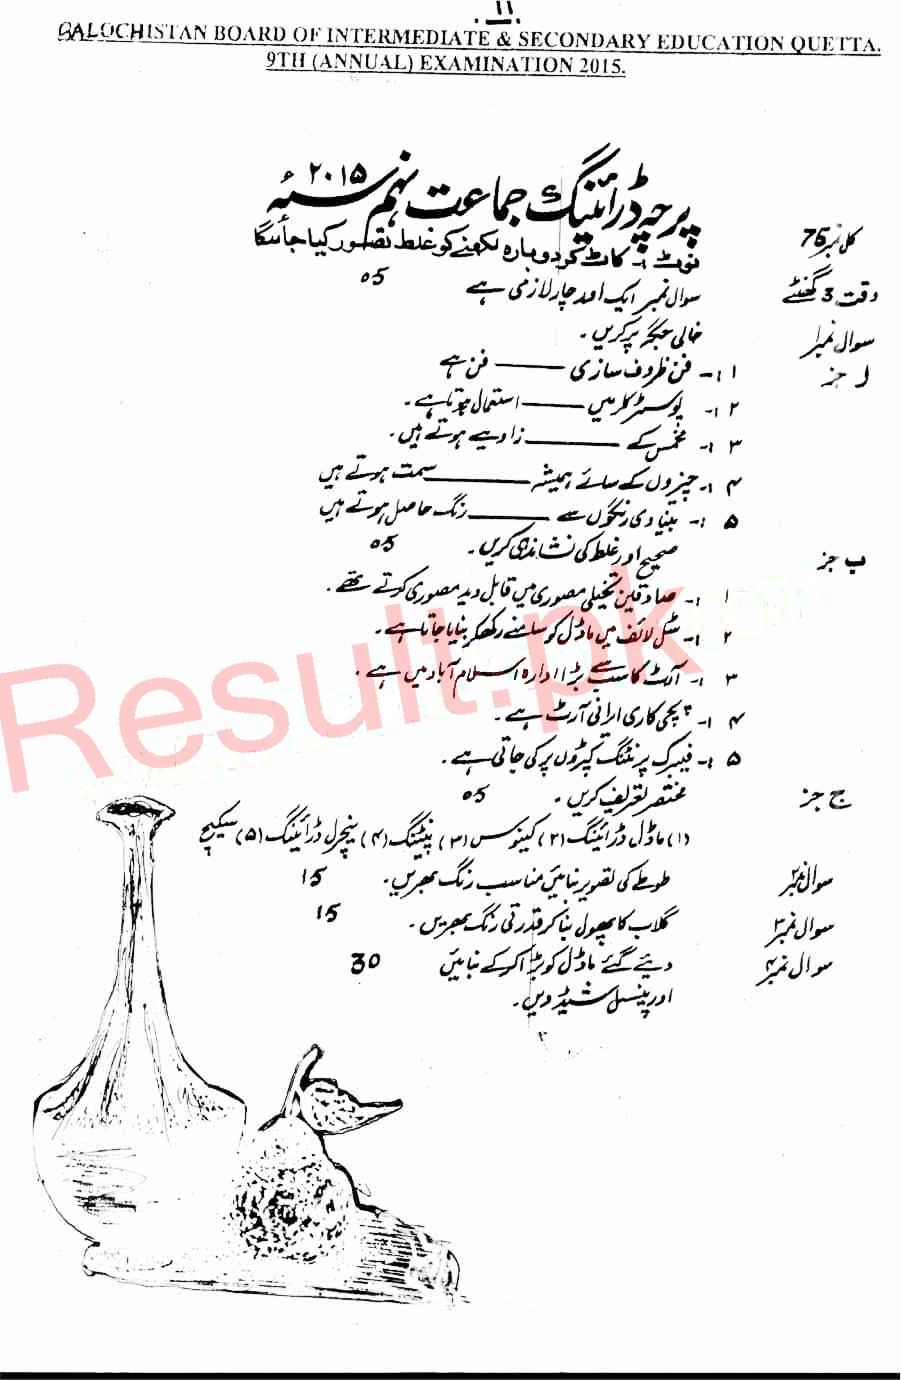 ۱۱
BALOCHISTAN BOARD OF INTERMEDIATE & SECONDARY EDUCATION QUETTA.
9TH (ANNUAL) EXAMINATION 2015.
پرچہ ڈرائینگ جماعت نہم سنہ ۲۰۱۵ء
کل نمبر 75 نوٹ :- کاٹ کر دوبارہ لکھنے کو غلط تصور کیا جائیگا
وقت 3 گھنٹے سوال نمبر ایک اور چار لازمی ہے 05
سوال نمبر ۱ خالی جگہ پر کریں ۔
ا جز ۱ :- فن ظروف سازی ——— فن ہے
۲ :- پوسٹر کلر میں ——— استعمال ہوتا ہے ۔
۳ :- مخمس کے ——— زاویے ہوتے ہیں ۔
۴ :- چیزوں کے سائے ہمیشہ ——— سمت ہوتے ہیں
۵ :- بنیادی رنگوں سے ——— رنگ حاصل ہوتے ہیں
ب جز صحیح اور غلط کی نشاندہی کریں ۔ 05
۱ :- صادقین تخیلی مصوری میں قابل دید مصوری کرتے تھے ۔
۲ :- سٹل لائف میں ماڈل کو سامنے رکھکر بنایا جاتا ہے ۔
۳ :- آرٹ کا سب سے بڑا ادارہ اسلام آباد میں ہے ۔
۴ :- پچی کاری ایرانی آرٹ ہے ۔
۵ :- فیبرک پرنٹنگ کپڑوں پر کی جاتی ہے ۔
ج جز مختصر تعریف کریں ۔ 05
(۱) ماڈل ڈرائینگ (۲) کینوس (۳) پینٹنگ (۴) نیچرل ڈرائینگ (۵) سکیچ
سوال نمبر ۲ طوطے کی تصویر بنائیں مناسب رنگ بھریں ۔ 15
سوال نمبر ۳ گلاب کا پھول بنا کر قدرتی رنگ بھریں ۔ 15
سوال نمبر ۴ دیئے گئے ماڈل کو بڑا کر کے بنائیں 30
اور پنسل شیڈ دیں ۔
Result.pk